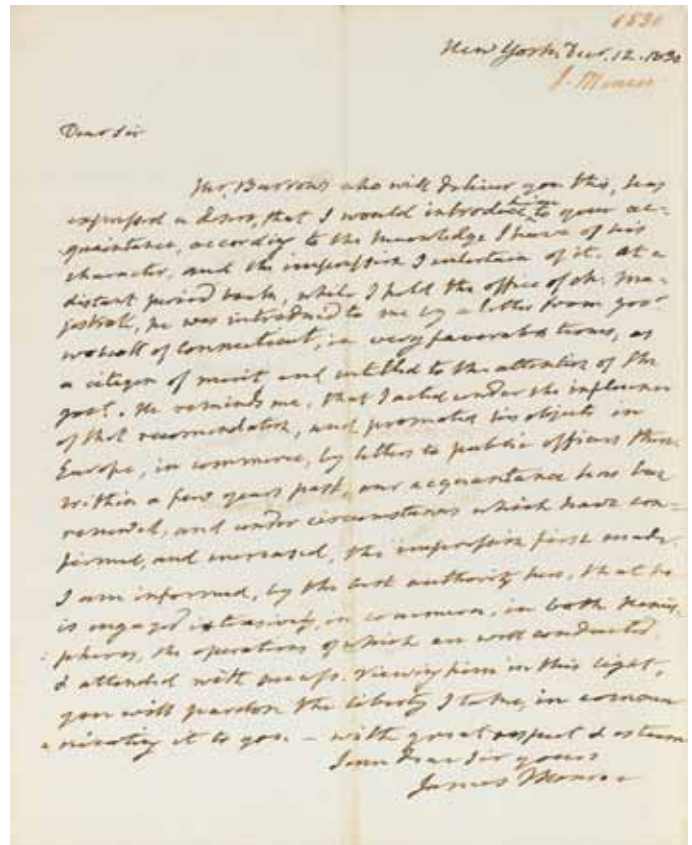 1830
New York, Dec. 12. 1830
J. Monroe
Dear Sir
Mr. Burrows who will deliver you this, has
expressed a desire, that I would introduce him to your ac-
quaintance, according to the knowledge I have of his
character, and the impression I entertain of it. At a
distant period back, while I held the office of ch: ma-
jistrate, he was introduced to me by a letter from govr
wolcott of Connecticut, in very favorable terms, as
a citizen of merit, and entitled to the attention of the
govt. He reminds me, that I acted under the influence
of that recomendation, and promoted his objects in
Europe, in commerce, by letters to public officers there
within a few years past, our acquaintance has been
renewed, and under circumstances which have con-
firmed, and increased, the impression first made.
I am informed, by the best authority here, that he
is engaged extensively, in commerce, in both hemis-
pheres, the operations of which are well conducted
& attended with success. Viewing him in this light,
you will pardon the liberty I take, in commu
nicating it to you. - with great respect & esteem
I am dear Sir yours
James Monroe